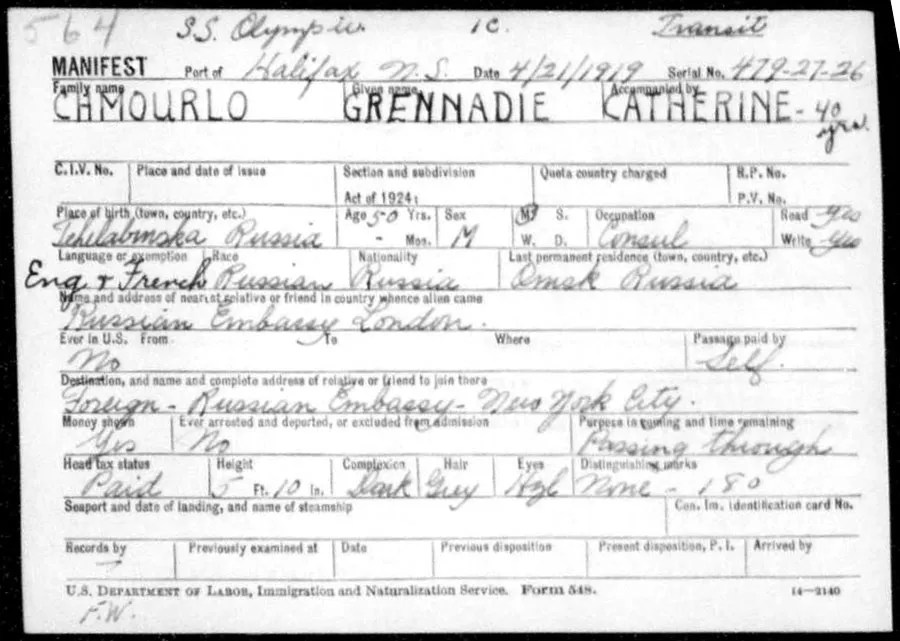 564 S.S. Olympic. 1C. Transit
MANIFEST Port of Halifax N.S. Date 4/21/1919 Serial No. 479-27-26
Family name Given name Accompanied by
CHMOURLO GRENNADIE CATHERINE - 40 yrs.
C.I.V. No. Place and date of issue Section and subdivision Quota country charged R.P. No.
Act of 1924: P.V. No.
Place of birth (town, country, etc.) Age 50 Yrs. Sex M S. Occupation Read yes
Tchilabinska Russia - Mos. M W. D. Consul Write yes
Language or exemption Race Nationality Last permanent residence (town, country, etc.)
Eng & French Russian Russia Omsk Russia
Name and address of nearest relative or friend in country whence alien came
Russian Embassy London.
Ever in U.S. From To Where Passage paid by
No Self.
Destination, and name and complete address of relative or friend to join there
Foreign - Russian Embassy - New York City.
Money shown Ever arrested and deported, or excluded from admission Purpose in coming and time remaining
Yes No Passing through
Head tax status Height Complexion Hair Eyes Distinguishing marks
Paid 5 Ft. 10 In. Dark Grey Hzl None - 180
Seaport and date of landing, and name of steamship Con. Im. Identification card No.
Records by Previously examined at Date Previous disposition Present disposition, P. I. Arrived by
-
U.S. DEPARTMENT OF LABOR, Immigration and Naturalization Service. Form 548. 14-2140
F.W.